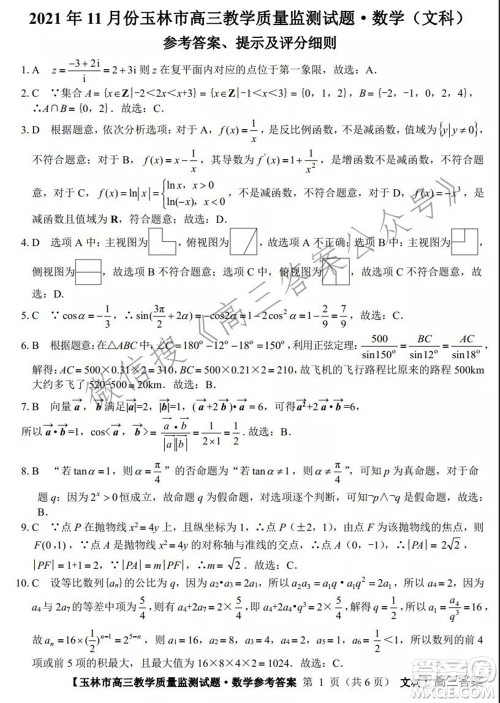 2021 年 11 月份玉林市高三教学质量监测试题·数学（文科）
参考答案、提示及评分细则
1. A z=(-3+2i)/i=2+3i 则 z 在复平面内对应的点位于第一象限，故选：A.
2. C ∵集合 A={x∈Z|-2<2x<x+3}={x∈Z|-1<x<3}={0，1，2}，B={0，2，4，6，8}，
∴A∩B={0，2}．故选：C.
3. D 根据题意，依次分析选项：对于 A，f(x)=1/x，是反比例函数，不是减函数，值域为{y|y≠0}，
不符合题意；对于 B，f(x)=x-1/x，其导数为 f'(x)=1+1/x²，是增函数不是减函数，不符合题
意，对于 C，f(x)=ln|x|={lnx, x>0 ln(-x), x<0，不是减函数，不符合题意，对于 D，f(x)=-x³，是
减函数且值域为 R，符合题意；故选：D.
4. D 选项 A 中：主视图为 ，故选项 A 不正确；选项 B 中：主视图为 ，
侧视图为 ，故选项 B 不符合题意；选项 C 中：俯视图为 ，故选项 C 不符合题
意，故选：D.
5. C ∵cosα=-1/3，∴sin(3π/2+2α)=-cos2α=1-2cos²α=1-2/9=7/9，故选：C.
6. B 根据题意：在△ABC 中，∠C=180°-12°-18°=150°，利用正弦定理：500/sin150°=BC/sin12°=AC/sin18°，
解得：AC=500×0.31×2=310km，BC=500×0.21×2=210km，故飞机的飞行路程比原来的 500km
大约多飞了 520-500=20km．故选：B.
7. B 向量 a，b 满足|a|=2，|b|=1，(a+2b)•b=3，可得 a•b+2b²=3，
所以 a•b=1，cos<a，b>=a•b/|a||b|=1/(2×1)=1/2．故选：B.
8. B “若 tanα=1，则 α=π/4”的否命题为“若 tanα≠1，则 α≠π/4”，故命题 p 是真命题；命
题 q：因为 2ˣ>0 恒成立，故命题 q 为假命题，可知¬q 是真命题，可知¬p∧¬q 是假命题，
故选：B.
9. C ∵点 P 在抛物线 x²=4y 上，且点 P 的纵坐标为 1，∴点 P（±2，1），由抛物线 x²=4y，所
F(0,1)（∵点 F 为抛物线 x²=4y 的焦点与准线与坐标轴的交点），∴|PA|=2√2，
|PF|=1+1=2，∴|PA|:|PF|=√2．故选：C.
10. C 设等比数列{aₙ}的公比为 q，因为 a₂•a₃=2a₁，所以 a₁²q³=2a₁，所以 a₄=2，因为
a₄与 2a₇的等差中项为 5/4，所以有 a₄+2a₇=2×5/4，即 a₄+2a₄•q³=5/2，解得 q=1/2，所以 a₁=a₄/q³=16，
故 aₙ=16×(1/2)ⁿ⁻¹=2⁵⁻ⁿ，
所以数列{aₙ}的最大项的值为 16，
【玉林市高三教学质量监测试题·数学参考答案 第 1 页（共 6 页） 文科】
微信搜《高三答案公众号》
高三答案